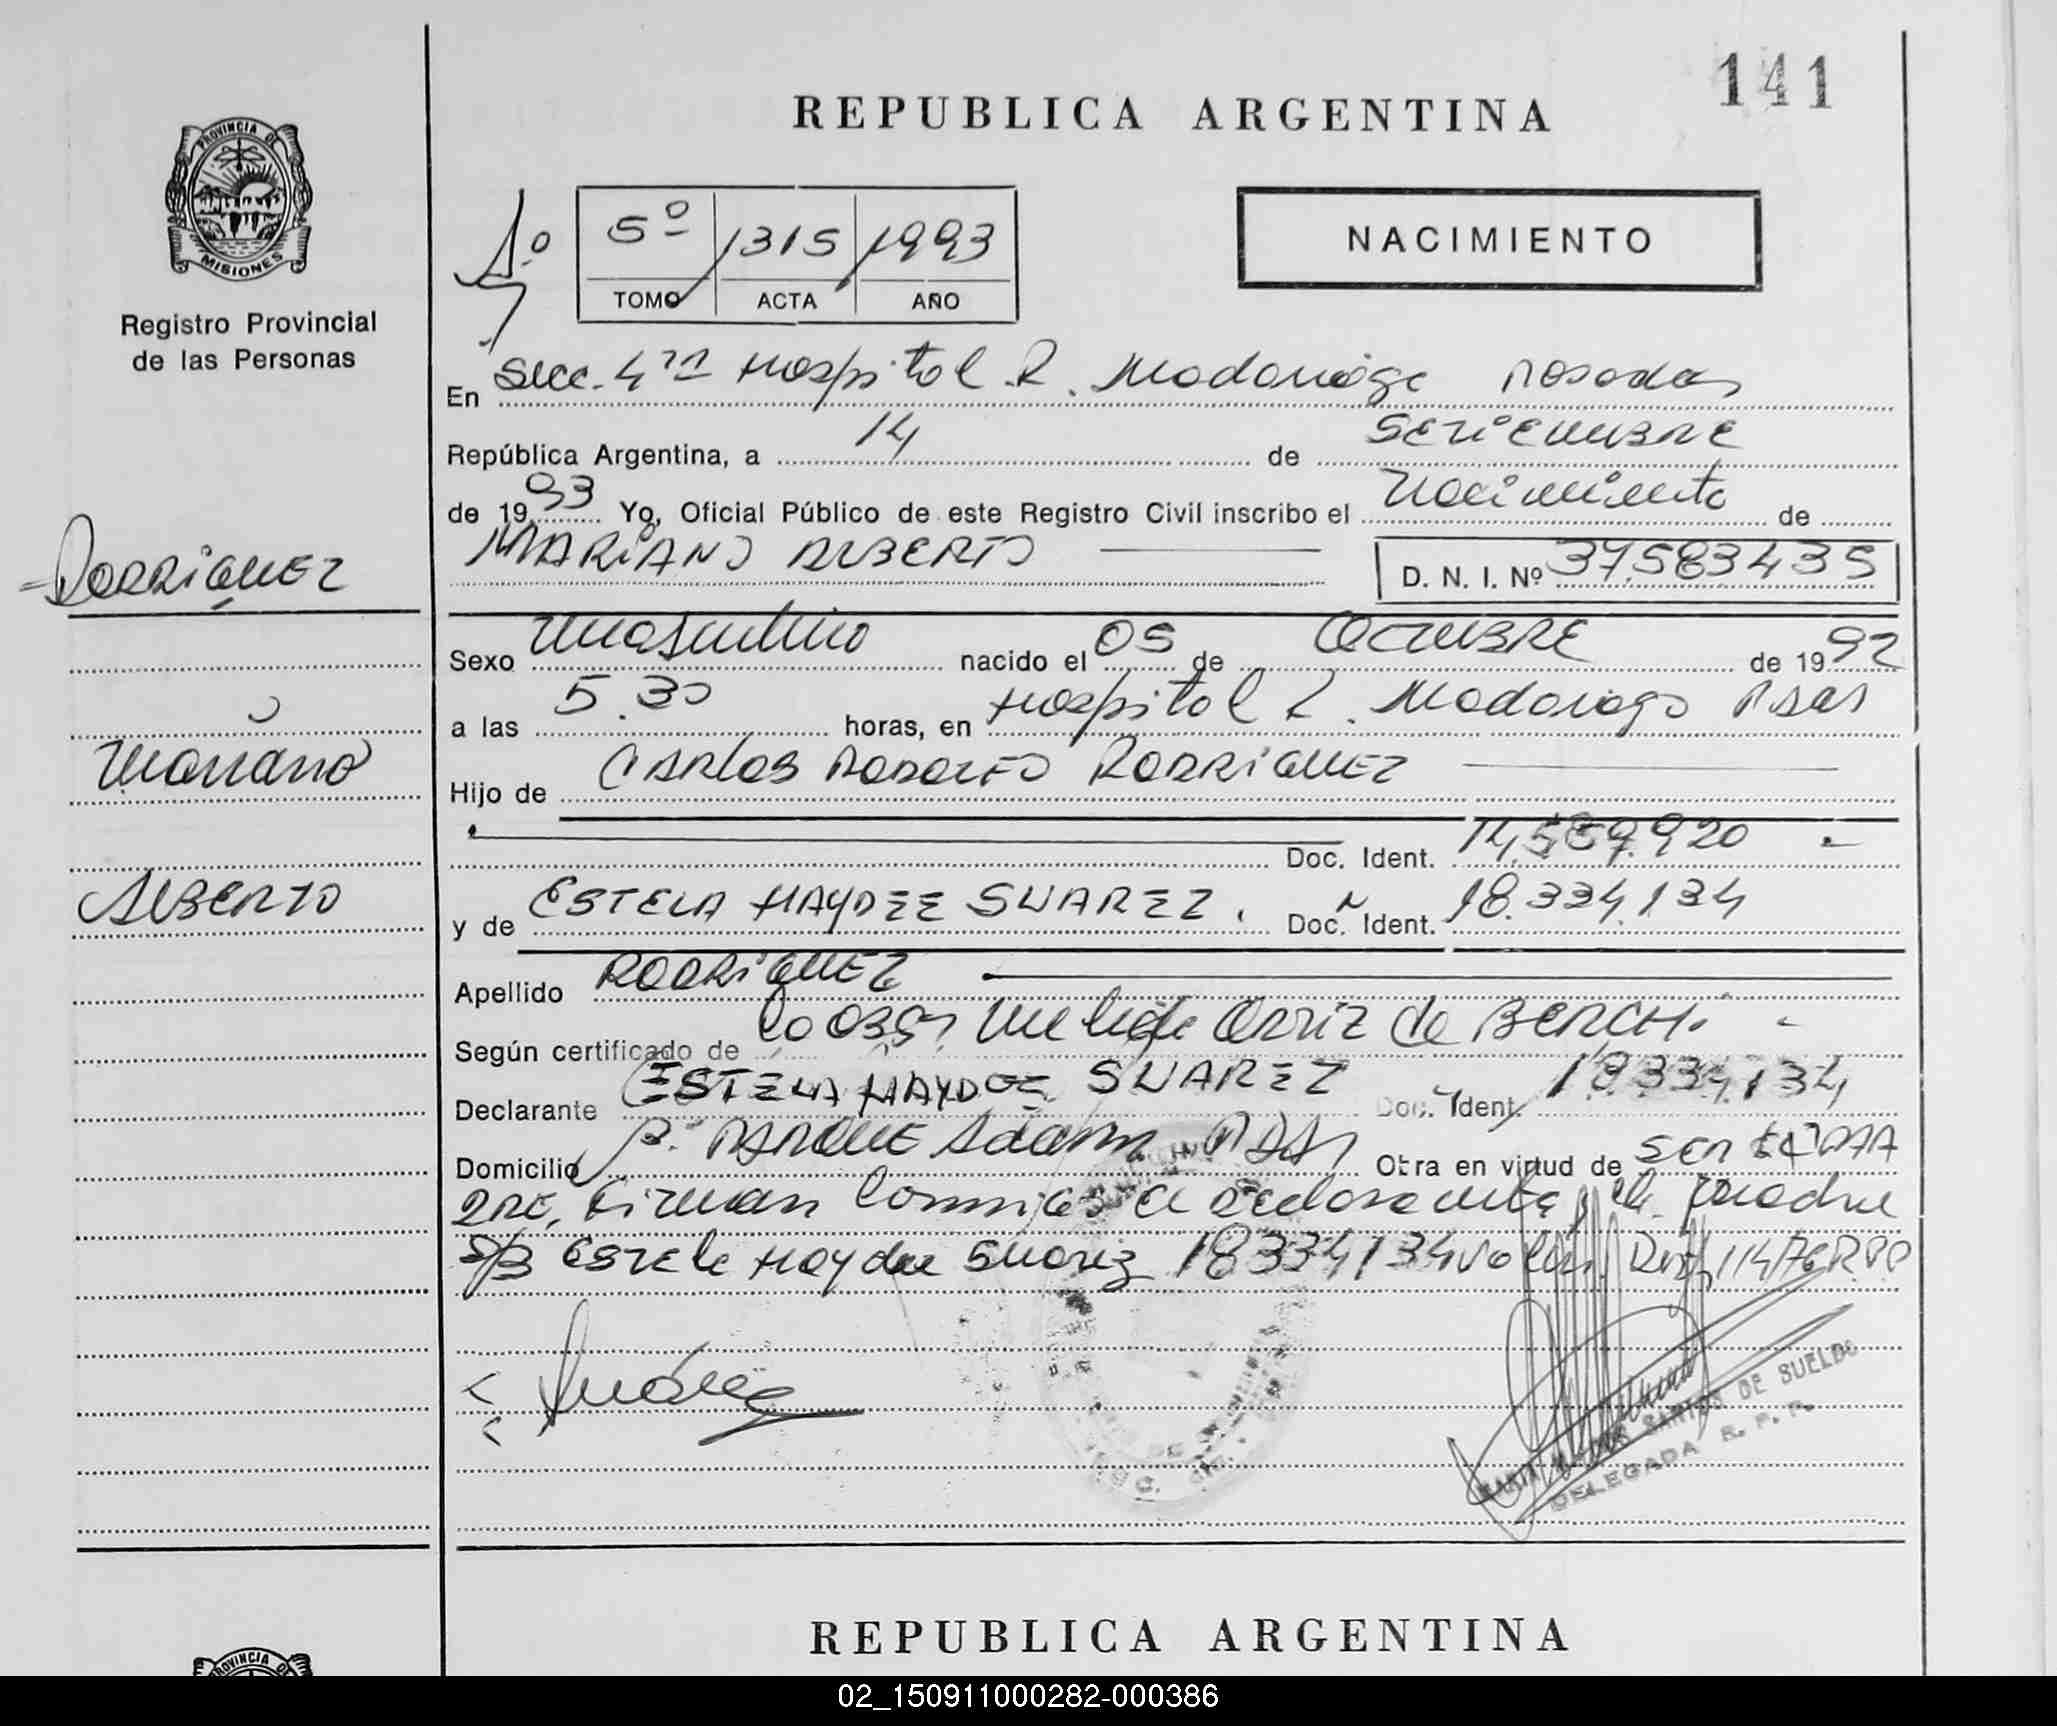 141
REPUBLICA ARGENTINA
PROVINCIA DE
MISIONES
Registro Provincial
de las Personas
5º 1315 1993
TOMO ACTA AÑO
NACIMIENTO
En Secc. 4ta Hospital R. Madariaga Posadas
República Argentina, a 14 de SETIEMBRE
de 1993 Yo, Oficial Público de este Registro Civil inscribo el Nacimiento de
MARIANO ALBERTO D. N. I. Nº 37.583435
RODRIGUEZ
Mariano
ALBERTO
Sexo Masculino nacido el 05 de OCTUBRE de 1992
a las 5.30 horas, en Hospital R. Madariaga Psas
Hijo de CARLOS RODOLFO RODRIGUEZ
Doc. Ident. 14.589.920
y de ESTELA HAYDEE SUAREZ. Doc. Ident. 18.334.134
Apellido RODRIGUEZ
Según certificado de Ortiz de BERCHI
Declarante ESTELA HAYDEE SUAREZ Doc. Ident. 18.334.134
Domicilio PARQUE Adam Otra en virtud de
Firman la declarante y la madre
Estela Haydee Suarez 18334134 114/76 RPP
Suárez
SANTOS DE SUELDO
DELEGADA R. P. P.
REPUBLICA ARGENTINA
PROVINCIA DE
02_150911000282-000386